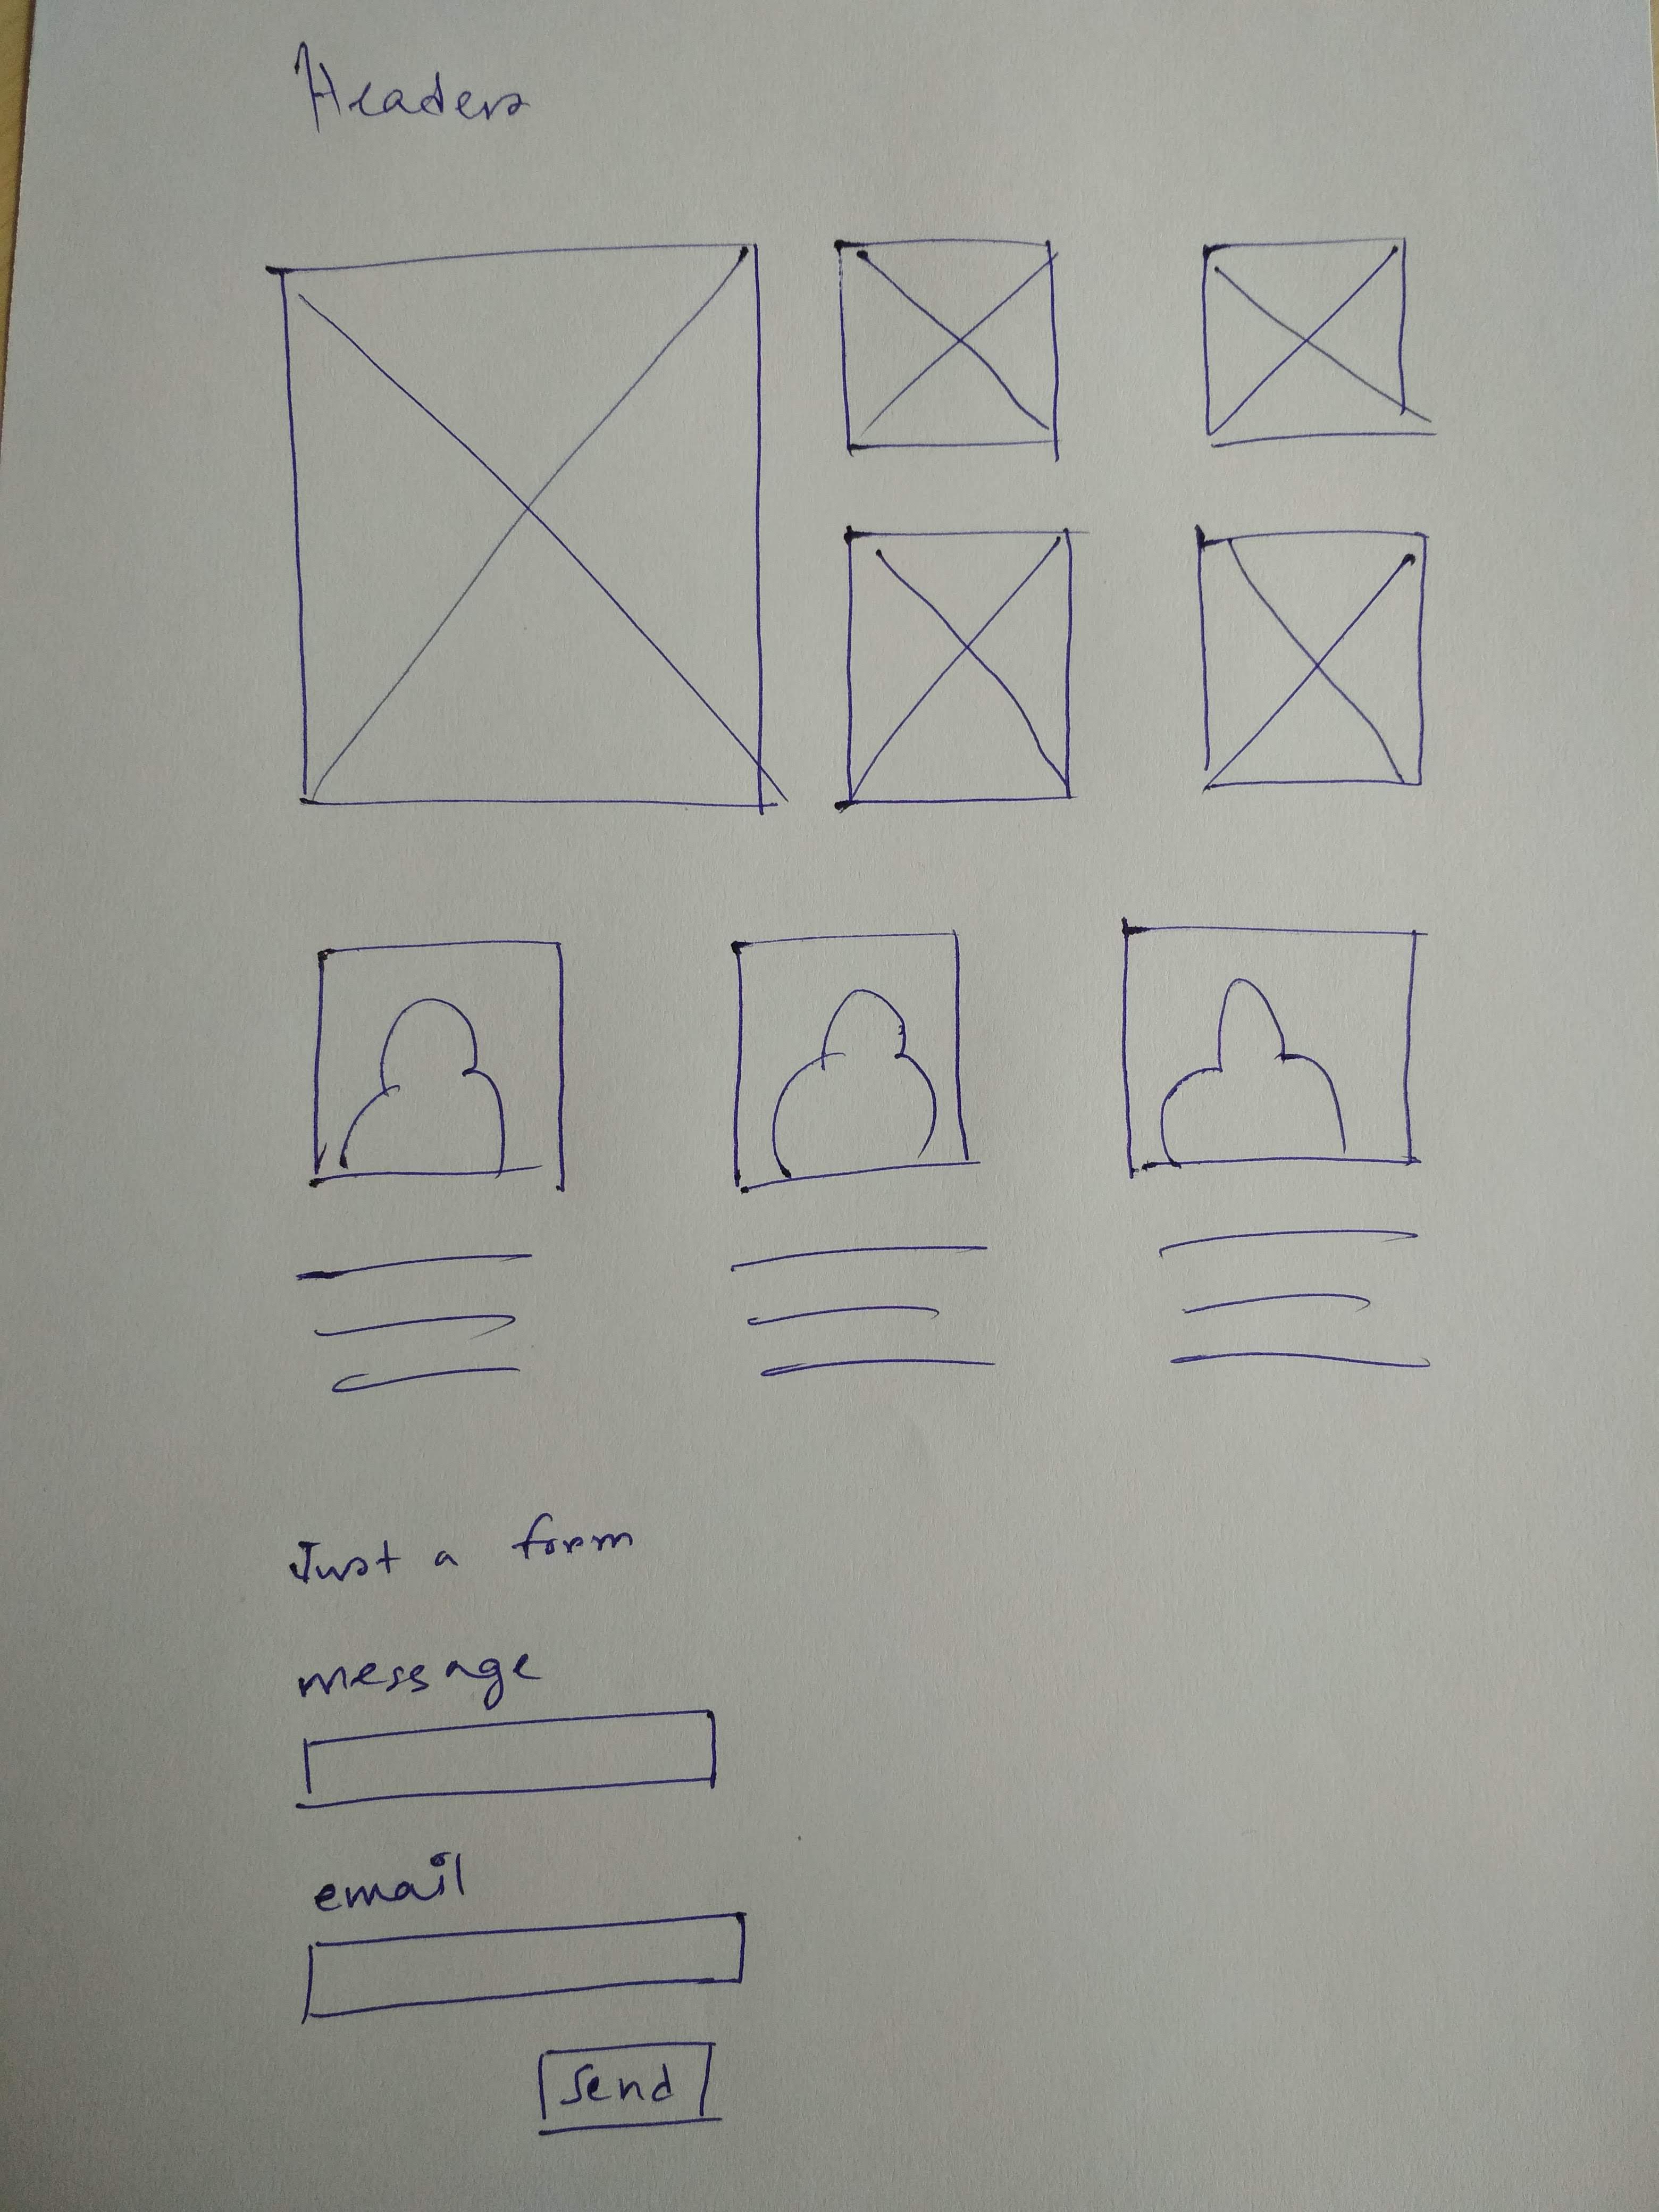 Headers
Just a form
message
email
Send